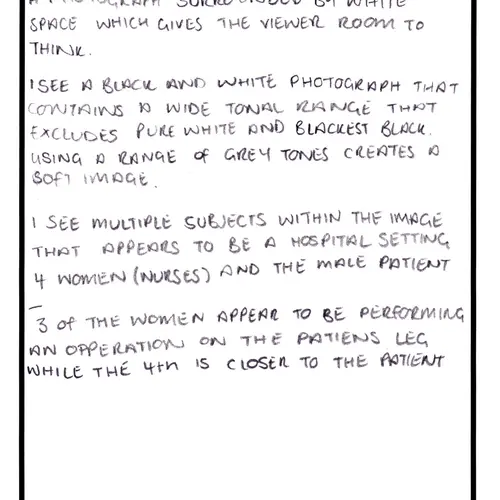 A PHOTOGRAPH SURROUNDED BY WHITE
SPACE WHICH GIVES THE VIEWER ROOM TO
THINK.
I SEE A BLACK AND WHITE PHOTOGRAPH THAT
CONTAINS A WIDE TONAL RANGE THAT
EXCLUDES PURE WHITE AND BLACKEST BLACK.
USING A RANGE OF GREY TONES CREATES A
SOFT IMAGE.
I SEE MULTIPLE SUBJECTS WITHIN THE IMAGE
THAT APPEARS TO BE A HOSPITAL SETTING
4 WOMEN (NURSES) AND THE MALE PATIENT
–
3 OF THE WOMEN APPEAR TO BE PERFORMING
AN OPPERATION ON THE PATIENS LEG
WHILE THE 4TH IS CLOSER TO THE PATIENT